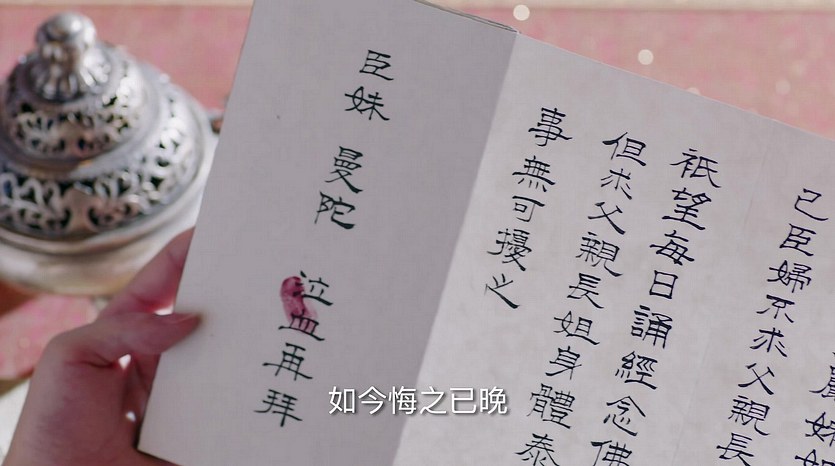 妹
己臣婦不求父親長
祇望每日誦經念佛
但求父親長姐身體泰
事無可擾心
臣妹 曼陀 泣血再拜
如今悔之已晚